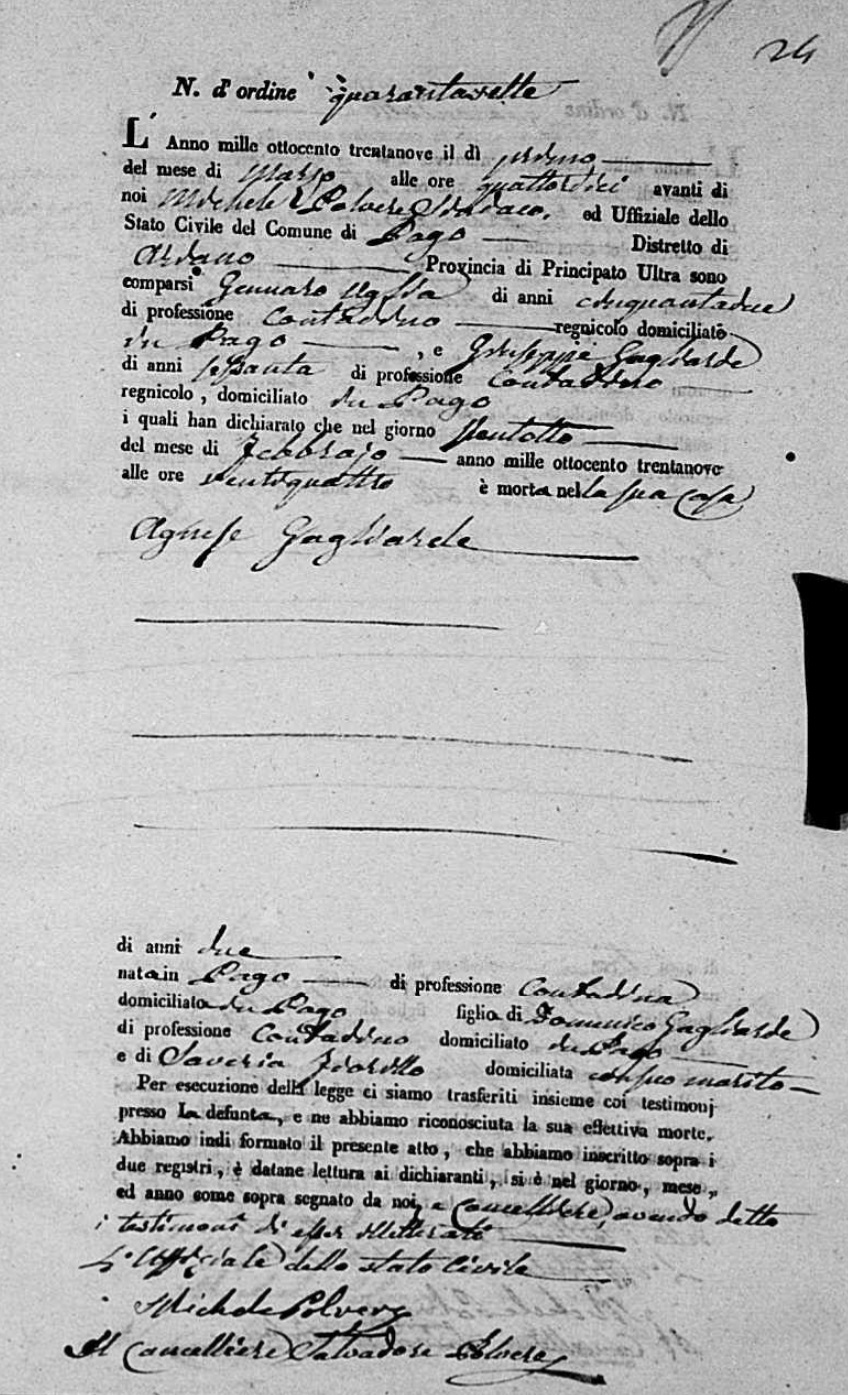 24
N. d' ordine quarantasette
L' Anno mille ottocento trentanove il dì primo
del mese di Marzo alle ore quattordici avanti di
noi Michele Polvere Sindaco, ed Uffiziale dello
Stato Civile del Comune di Pago Distretto di
Ariano Provincia di Principato Ultra sono
comparsi Gennaro di anni cinquantadue
di professione Contadino regnicolo domiciliato
in Pago , e Giuseppe Gagliarde
di anni sessanta di professione Contadino
regnicolo , domiciliato in Pago
i quali han dichiarato che nel giorno ventotto
del mese di Febbrajo anno mille ottocento trentanove
alle ore ventiquattro è morta nella sua casa
Agnese Gagliarde
di anni due
nata in Pago di professione Contadina
domiciliata in Pago figlia di Domenico Gagliarde
di professione Contadino domiciliato in Pago
e di Saveria Fiorillo domiciliata con suo marito
Per esecuzione della legge ci siamo trasferiti insieme coi testimonj
presso la defunta, e ne abbiamo riconosciuta la sua effettiva morte.
Abbiamo indi formato il presente atto , che abbiamo inscritto sopra i
due registri , è datane lettura ai dichiaranti , si è nel giorno , mese ,
ed anno some sopra segnato da noi, e Cancelliere, avendo detto
i testimoni di esser illetterati
L' Uffiziale dello stato Civile
Michele Polvere
Il Cancelliere Salvadore Polvere